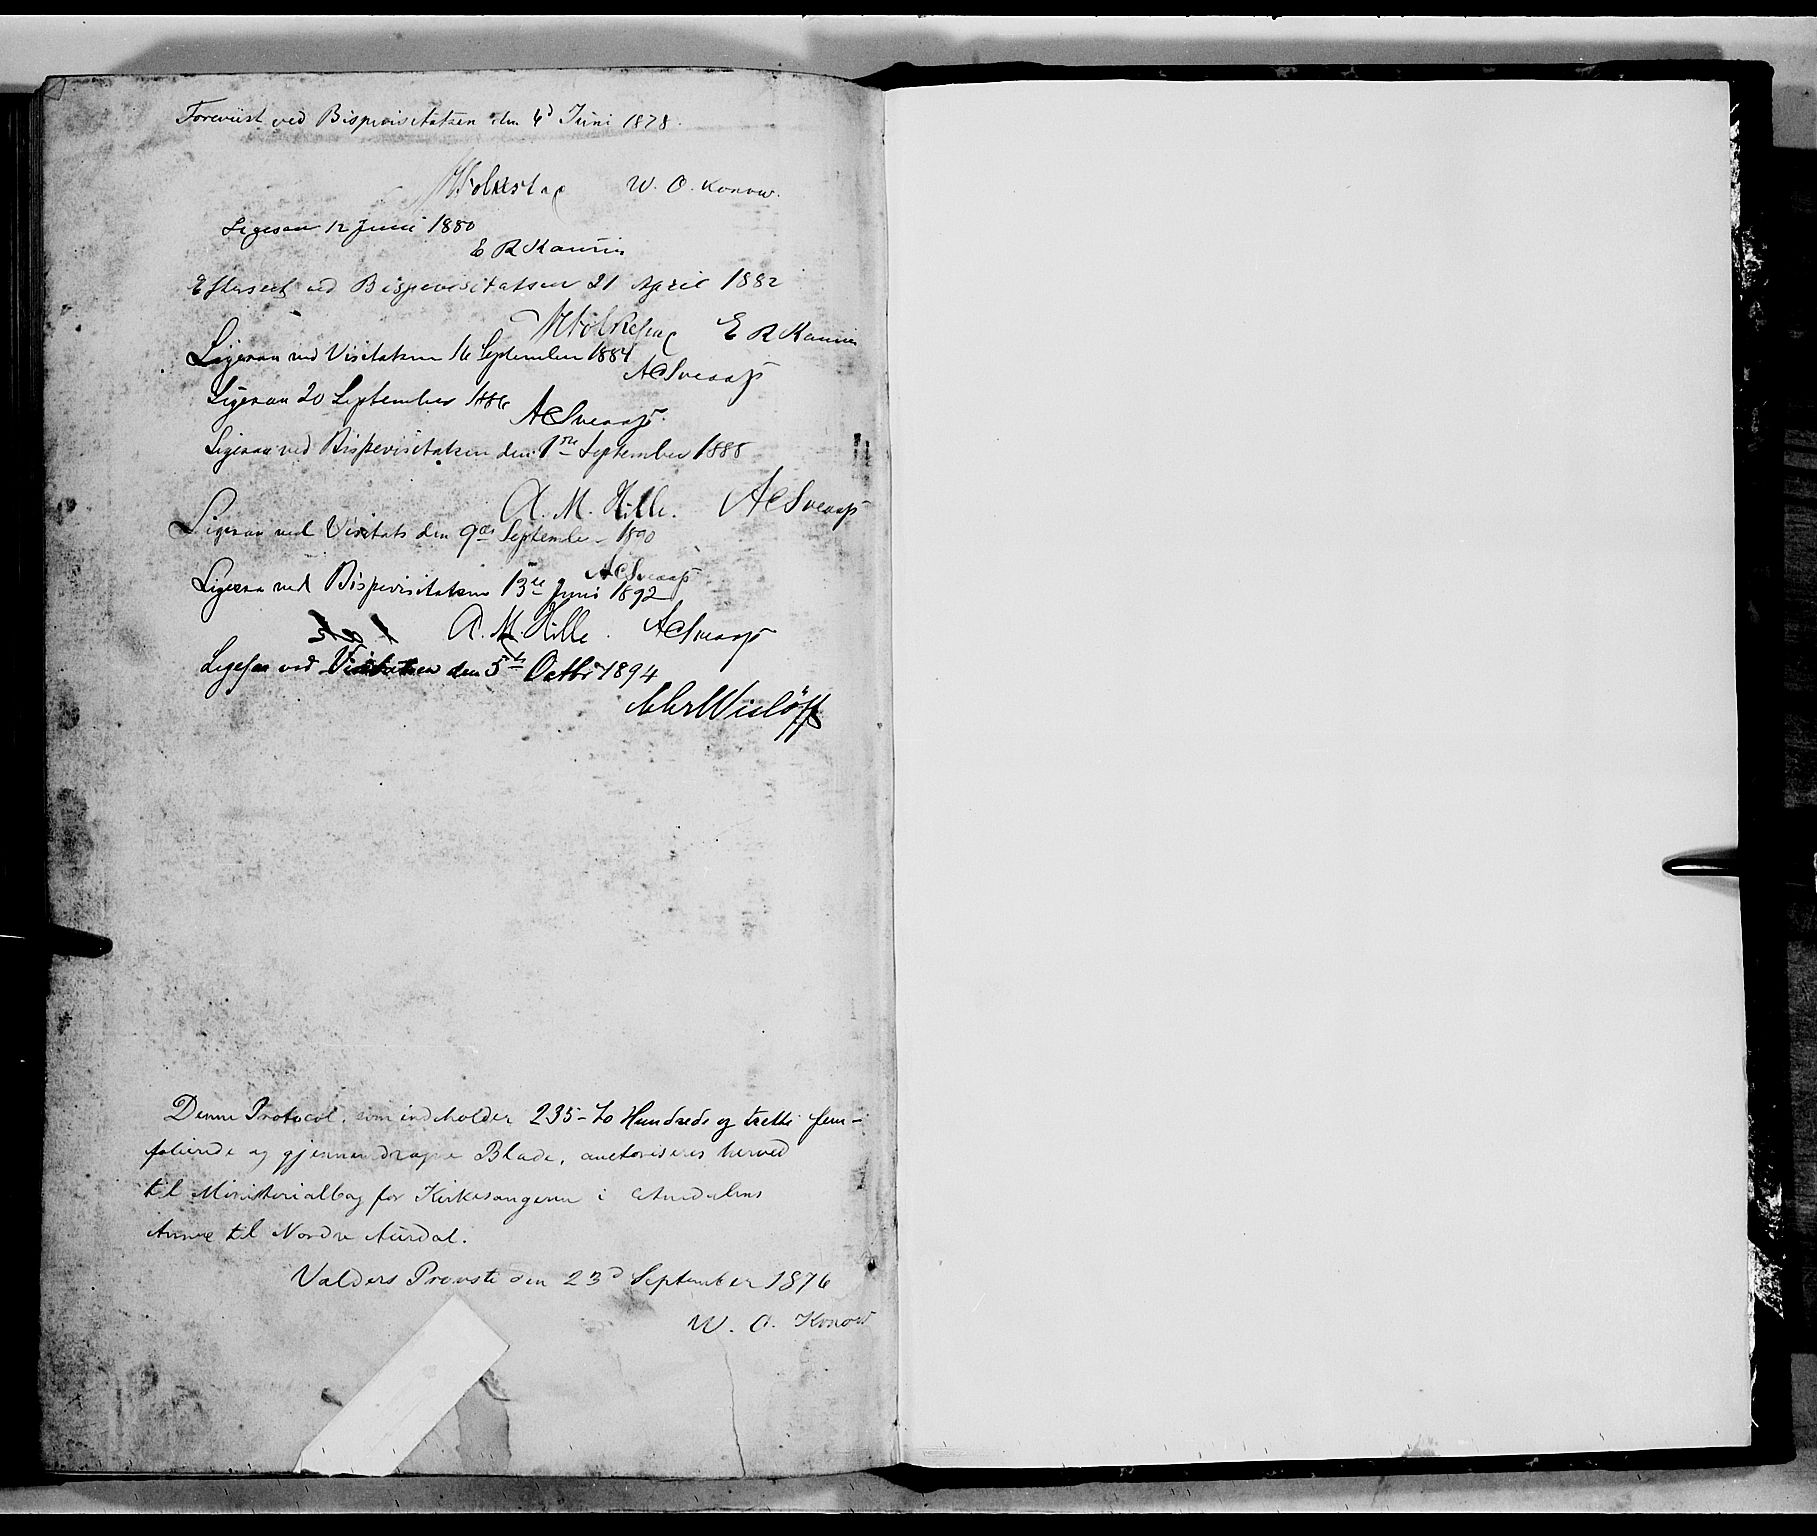 Foreviist ved Bispevisitatsen den 6d Juni 1878.
W. O. Konow.
Ligesaa 12 Juni 1880
E R
Efterseet ved Bispevisitatsen 21 April 1882
E R
Ligesaa ved Visitatsen 16 September 1884
ACSveaas
Ligesaa 20 September 1886
ACSveaas
Ligesaa ved Bispevisitatsen den 1ste September 1888
A. M. Hille. ACSveaas
Ligesaa ved Visitats den 9de September 1890
ACSveaas
Ligesaa ved Bispevisitatsen 13de Juni 1892
A. M. Hille. ACSveaas
Ligesaa ved Visitatsen den 5te Octbr 1894
Wislöff
Denne Protocol, som indeholder 235 – to Hundrede og tretti fem –
folierede og gjennemdragne Blade, auctoriseres herved
til Ministerialbog for Kirkesangeren i Aurdalens
Annex til Nordre Aurdal.
Valders Provsti den 23d September 1876
W. O. Konow